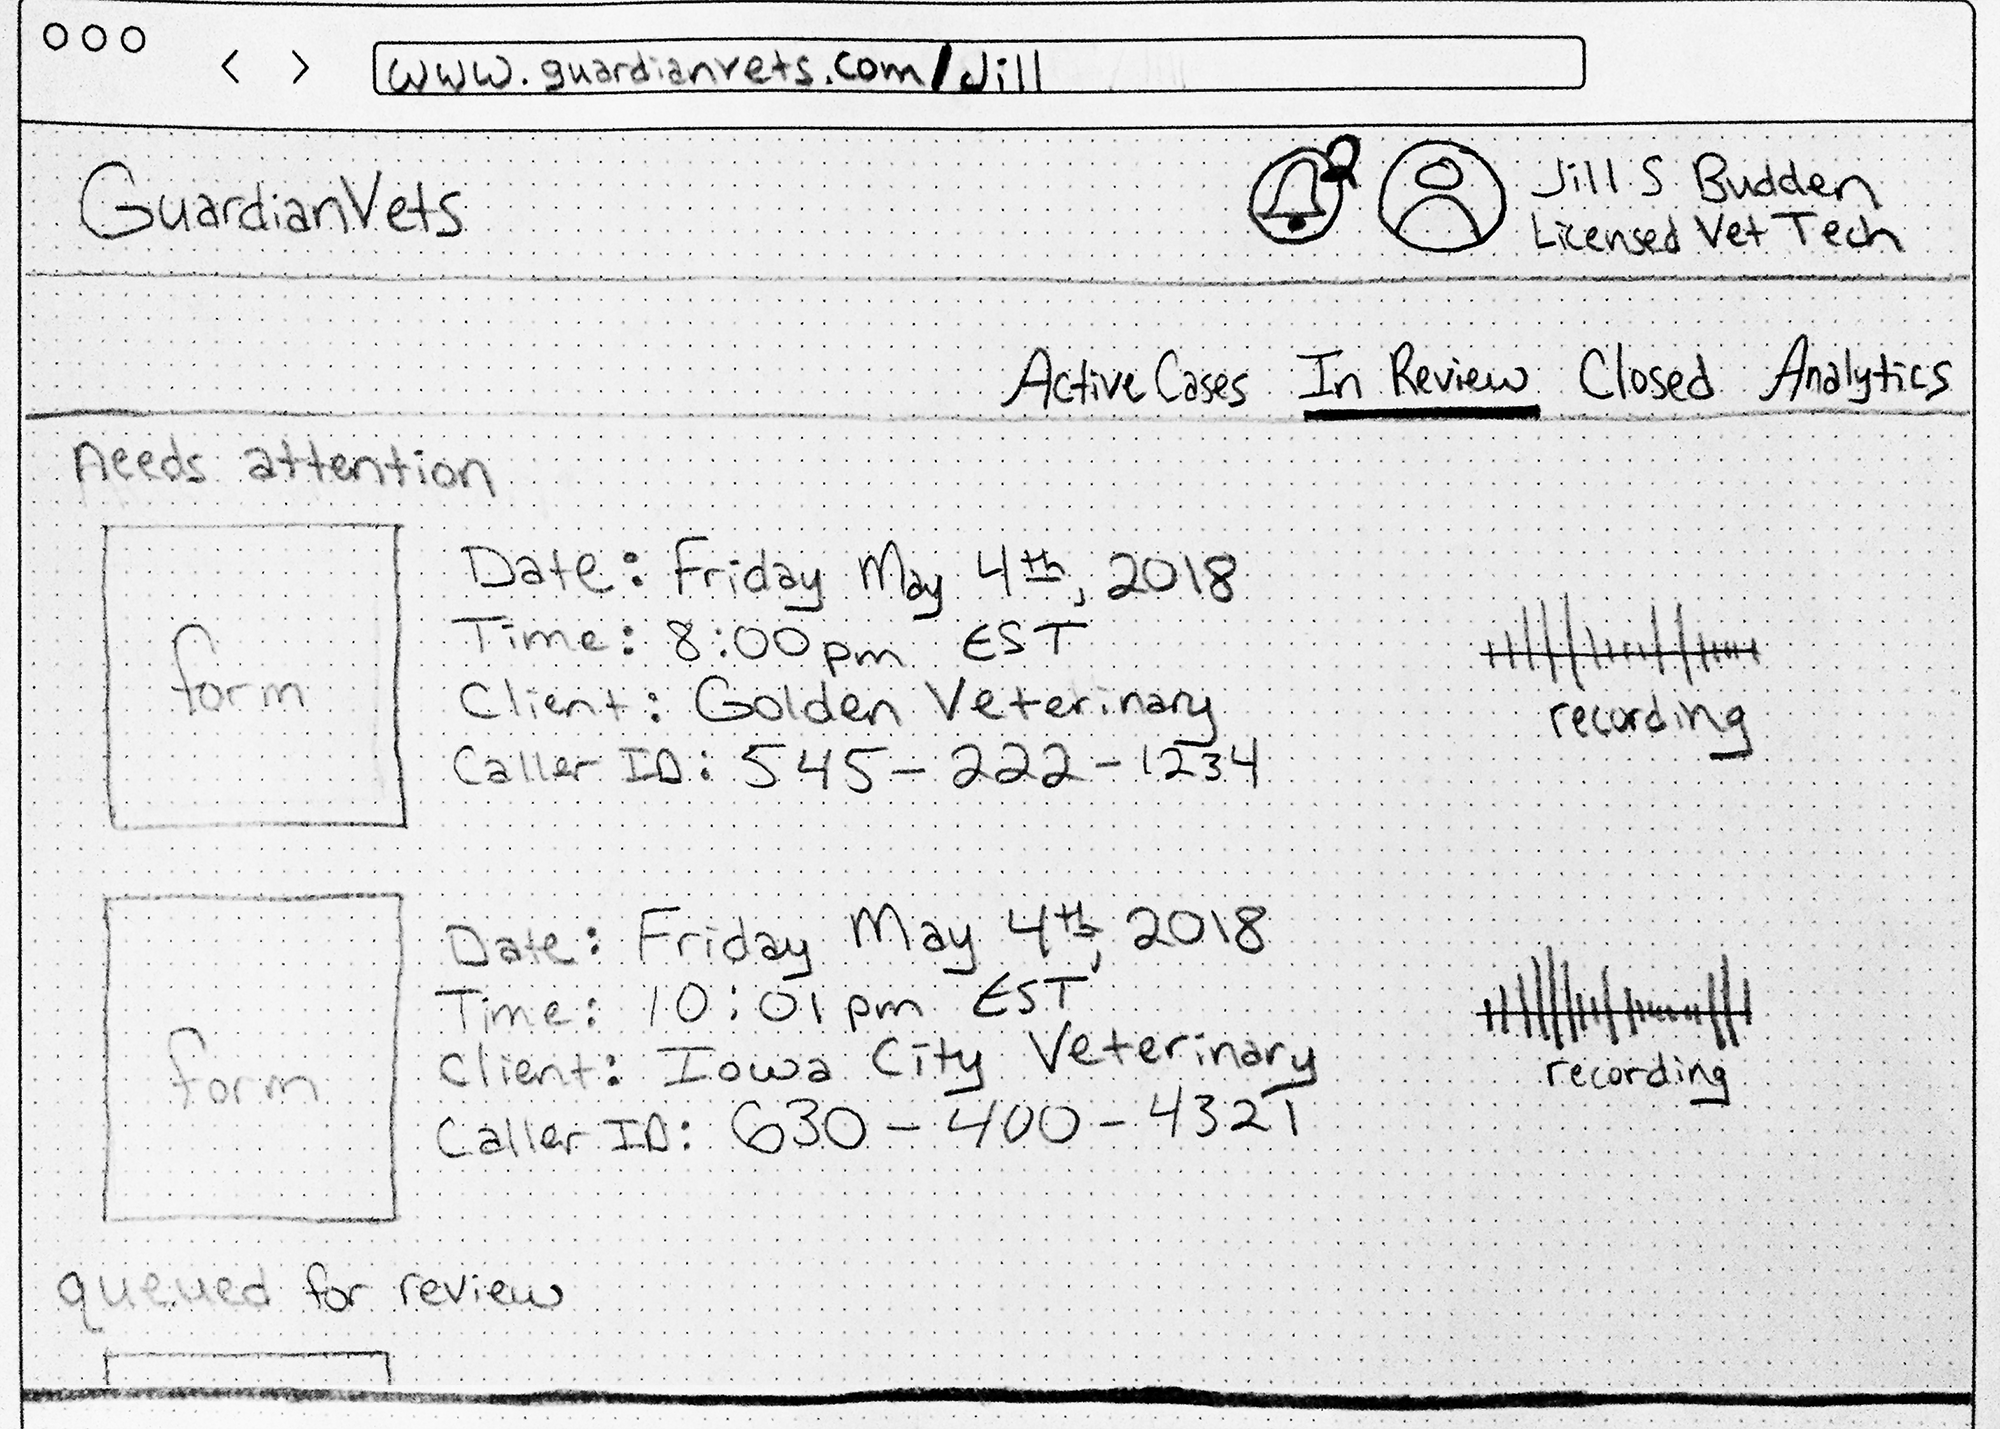 www.guardianvets.com/Jill
GuardianVets
Jill S Budden
Licensed Vet Tech
Active Cases In Review Closed Analytics
Needs attention
form
Date: Friday May 4th, 2018
Time: 8:00pm EST
Client: Golden Veterinary
Caller ID: 545-222-1234
recording
form
Date: Friday May 4th, 2018
Time: 10:01pm EST
Client: Iowa City Veterinary
Caller ID: 630-400-4321
recording
queued for review